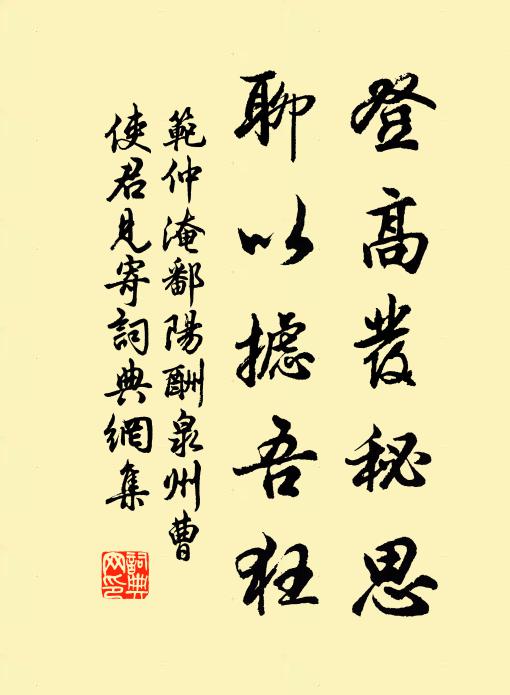 登高發秘思
聊以攄吾狂
範仲淹鄱陽酬泉州曹
使君見寄詞典網集
詞典
网印